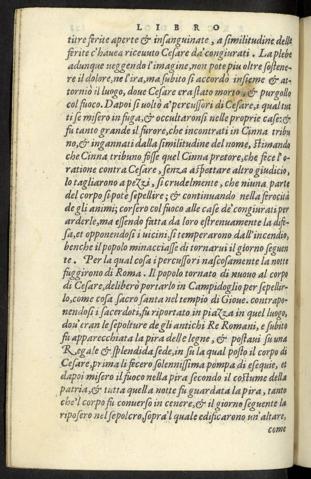 LIBRO
ture ferite aperte & insanguinate, a similitudine delle
ferite c'haueua riceuuto Cesare da' congiurati. La plebe
adunque ueggendo l'imagine, non pote piu oltre sostene-
re il dolore, ne l'ira, ma subito si accordò insieme & at-
torniò il luogo, doue Cesare era stato morto, & purgollo
col fuoco. Dapoi si uoltò a' percussori di Cesare, i qual tut
ti se misero in fuga, & occultaronsi nelle proprie case: &
fu tanto grande il furore, che incontrati in Cinna tribu
no, & ingannati dalla similitudine del nome, stimando
che Cinna tribuno fosse quel Cinna pretore, che fece l'o-
ratione contra Cesare, senza aspettare altro giudicio,
lo tagliarono a pezzi, si crudelmente, che niuna parte
del corpo si potè sepellire; & continuando nella ferocità
de gli animi; corsero col fuoco alle case de' congiurati per
arderle, ma essendo fatta da loro estrenuamente la difi-
sa, et opponendosi i uicini, si temperarono dall'incendio,
benche il popolo minacciasse di tornarui il giorno seguen
te. Per la qual cosa i percussori nascosamente la notte
fuggirono di Roma. Il popolo tornato di nuouo al corpo
di Cesare, deliberò portarlo in Campidoglio per sepellir-
lo, come cosa sacro santa nel tempio di Gioue. contrapo-
nendosi i sacerdoti, fu riportato in piazza in quel luogo,
dou'eran le sepolture de gli antichi Re Romani, e subito
fu apparecchiata la pira delle legne, & postaui su una
Regale & splendida sede, in su la qual posto il corpo di
Cesare, prima li fecero solennissima pompa di esequie, et
dapoi misero il fuoco nella pira secondo il costume della
patria, & tutta quella notte fu guardata la pira, tanto
che'l corpo fu conuerso in cenere, & il giorno seguente la
riposero nel sepolcro, sopra'l quale edificarono un'altare,
come